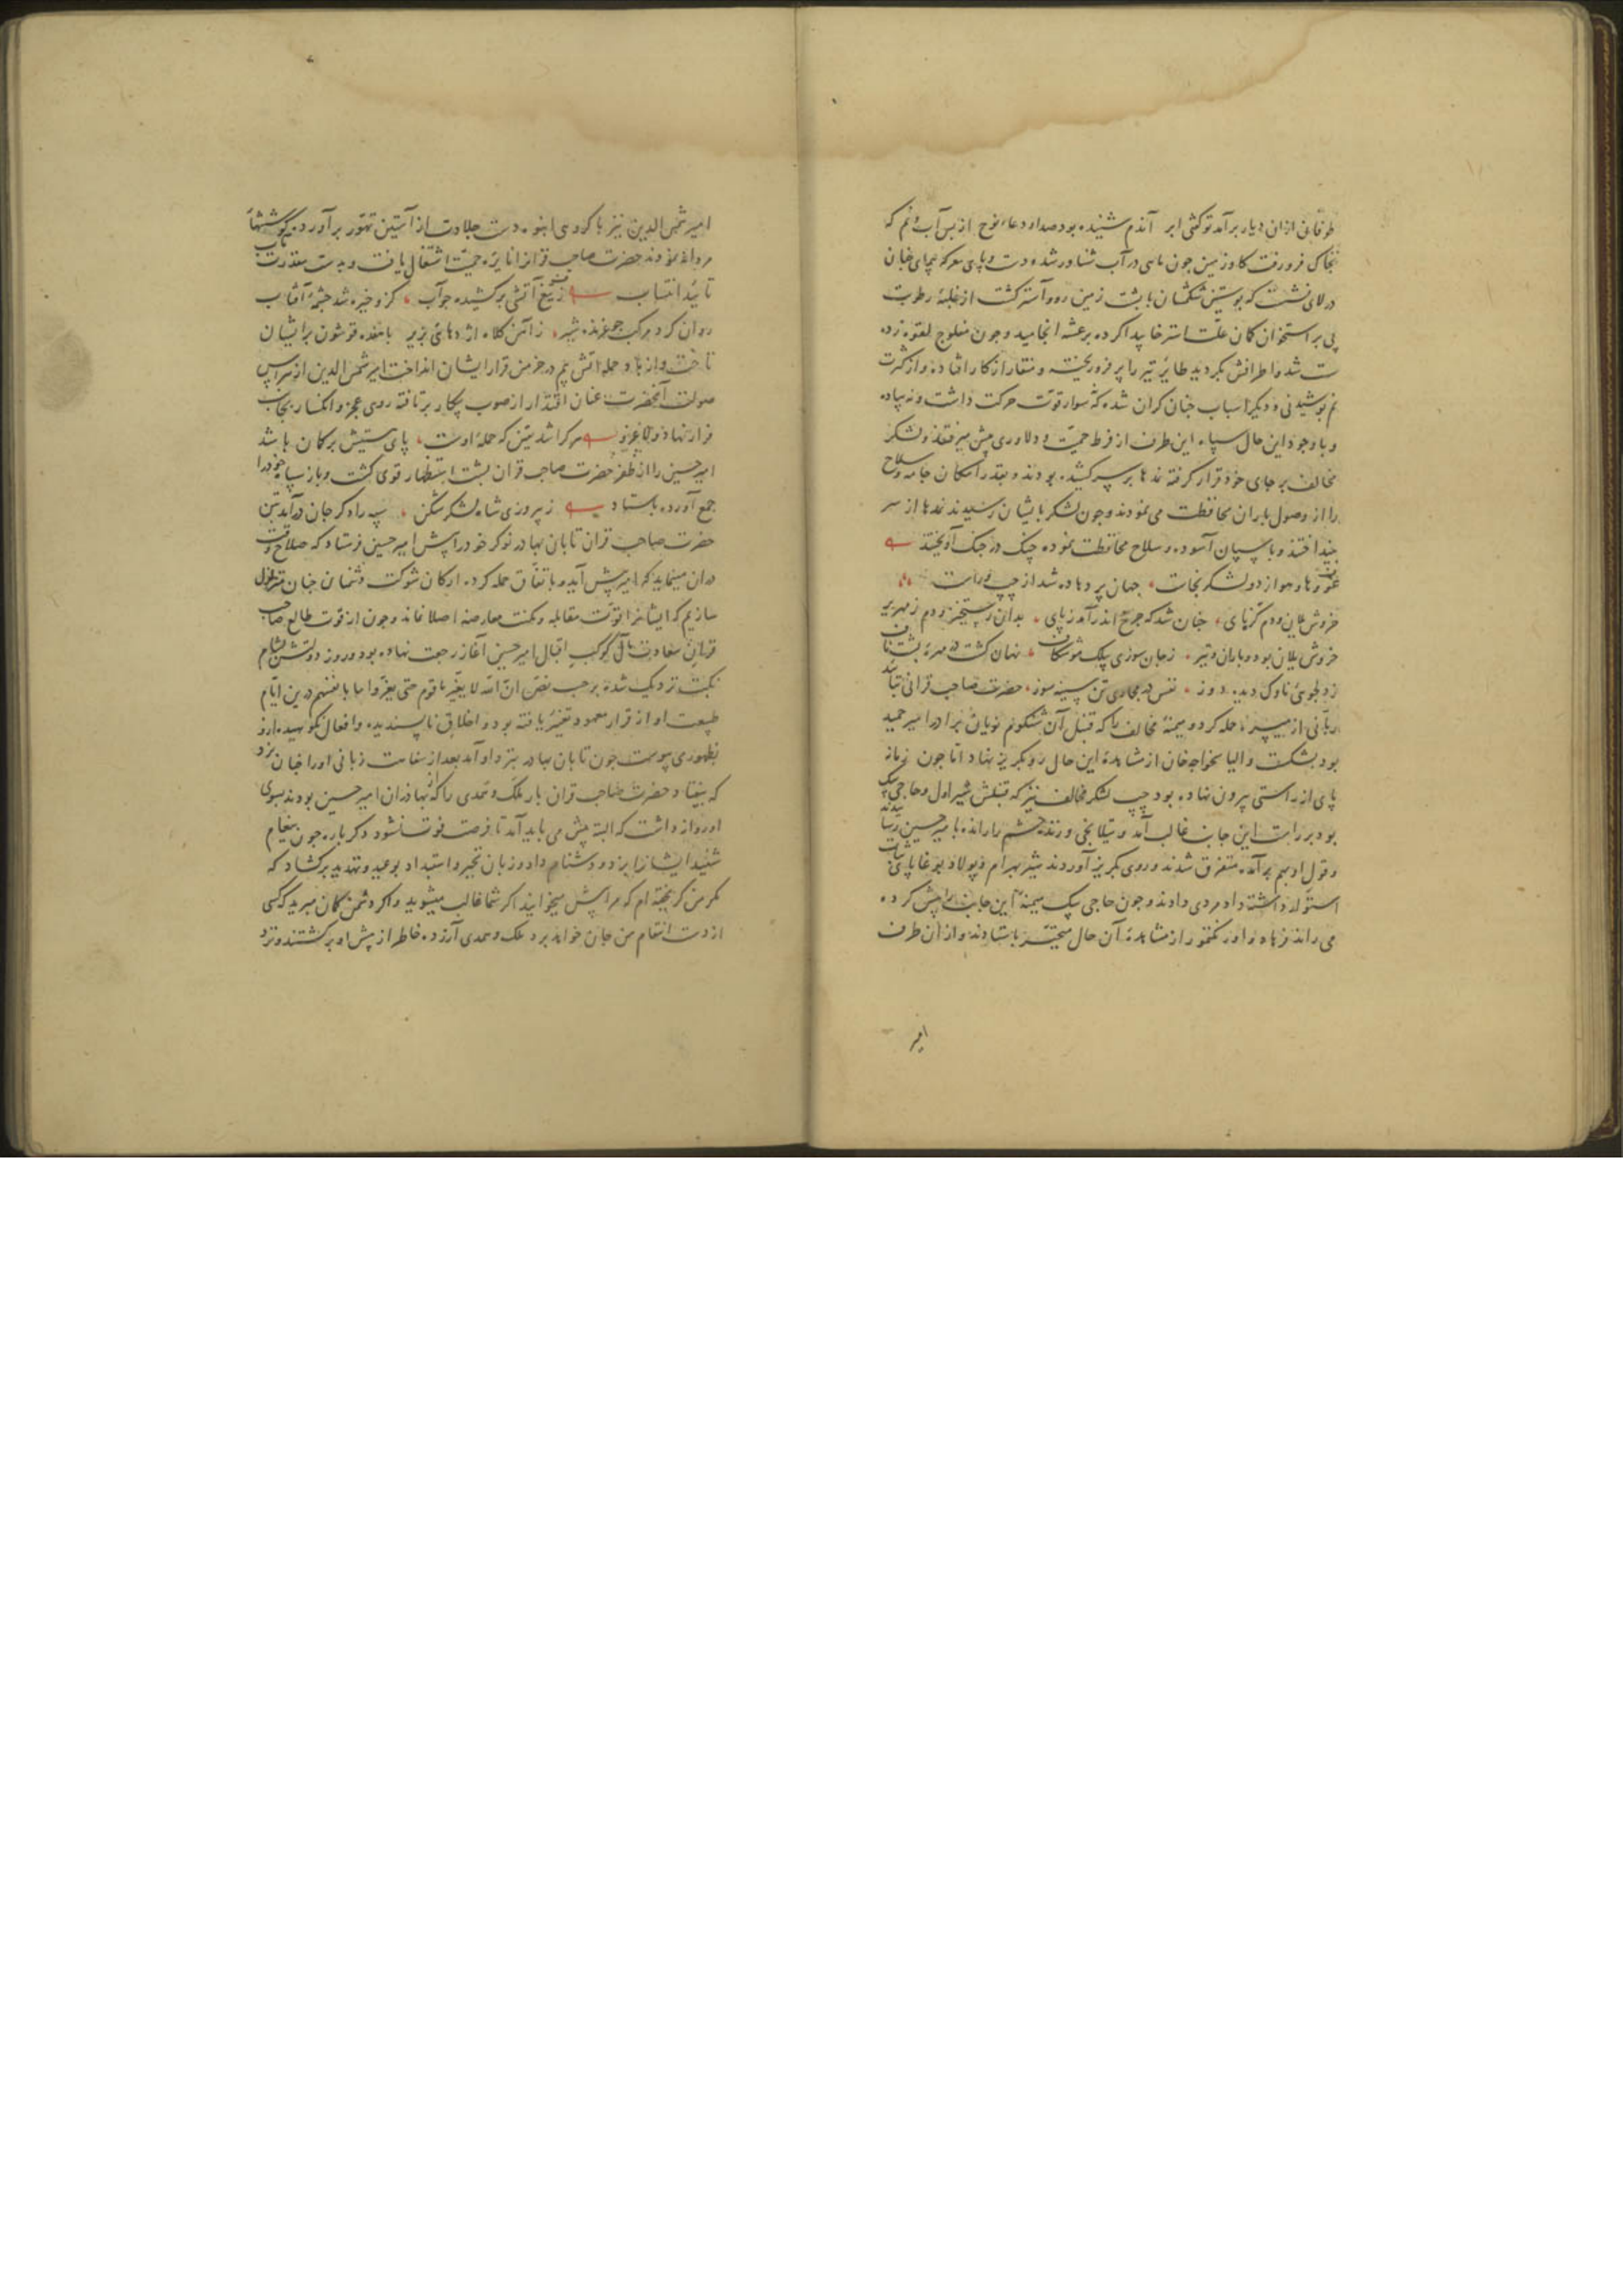 طوفانی ازان دیار برآمد توکفتی ابر آندم شنیده بود صداء دعاء نوح از بس آب و نم که
بخاک فرو رفت کاو زمین چون ماهی در آب شناور شد و دست و پای معرکه پیمای خیان
در لای نشست که پوستین شکمشان با پشت زمین رو و آستر کشت از غلبهٔ رطوبت
پی بر استخوان کمان علت استرخا پیدا کرده برعشه انجامید و چون مفلوج لقوه زده
ست شد و اطرافش بکردید طایر تیر را پر فرو ریخته و منقار از کار افتاد و از کثرت
نم پوشیدنی و دیکر اسباب چنان کران شد که نه سوار قوت حرکت داشت و نه پیاده
و با وجود این حال سپاه این طرف از فرط حمیت و دلاوری پیش میرفتند و لشکر
مخالف بر جای خود قرار کرفته نمدها بر سر کشیده بودند و بقدر امکان جامه و سلاح
را از وصول باران محافظت می نمودند و چون لشکر بایشان رسیدند نمدها از سر
بینداختند و با اسپان آسوده و سلاح محافظت نموده جنک در جنک آویختند
غو و ها و هو از دو لشکر بخاست جهان پر ز هاده شد از چپ و راست
خروش یلان و دم کرنای چنان شد که چرخ اندر آمد ز پای بدان رستخیز و دم زمهریر
خروش یلان بود و باران و تیر ز جان سوزی بیلک موشکاف نهان کشته در مهرهٔ پشت ناف
ز دلجوئی ناوک دیده دوز نفس در مجاری تن سینه سوز حضرت صاحب قرانی بتأیید
ربانی از میسره حمله کرد و میمنهٔ مخالف را که قنبل آن شنکوم نویان برادر امیر حمید
بود بشکست و الیاس خواجه خان از مشاهدهٔ این حال رو بکریز نهاد اما چون زمانه
پای از راستی بیرون نهاده بود چپ لشکر مخالف نیز که قنبلش شیراول و حاجی بیک
بود بر راست این جانب غالب آمد و تیلانجی و زنده حشم را رانده با میر حسین رسانیدند
و قول او بهم برآمده متفرق شدند و روی بکریز آوردند شیر بهرام و پولاد بوغا پای ثبات
استوار داشته داد مردی دادند و چون حاجی بیک میمنهٔ این جانب را پیش کرده
می راند فرهاد و اورنکتمور از مشاهدهٔ آن حال متحیر باستادند و از ان طرف
امیر
امیر شمس الدین نیز با کروهی انبوه دست جلادت از آستین تهور برآورده کوششهاء
مردانه نمودند حضرت صاحب قرانرا نایرهٔ حمیت اشتعال یافت و بدست مقدرت
تأیید انتساب ز تیغ آتشی برکشیده چو آب کزو خیره شد چشمهٔ آفتاب
روان کرد مرکب چو غرنده شیر ز آتش کلاه اژدهائی بزیر با هفده قوشون برایشان
تاخت و از باد حمله آتش بیم در خرمن قرار ایشان انداخت امیر شمس الدین از هراس
صولت آنحضرت عنان اقتدار از صوب پیکار برتافته روی عجز و انکسار بجانب
فرار نهاد هر کرا شد یقین که حملهٔ اوست پای هستیش بر کمان باشد
امیر حسین را از ظفر حضرت صاحب قران پشت استظهار قوی کشت و باز سپاه خود را
جمع آورده باستاد ز پیروزی شاه لشکر شکن سپه راد کر جان درآمد بتن
حضرت صاحب قران تابان بهادر نوکر خود را پیش امیر حسین فرستاد که صلاح وقت
دران مینماید که امیر پیش آید و باتفاق حمله کرده ارکان شوکت دشمنان چنان متزلزل
سازیم که ایشانرا قوت مقابله و مکنت معارضه اصلا نماند و چون از قوت طالع صاحب
قران سعادت مآل کوکب اقبال امیر حسین آغاز رجعت نهاده بود و روز دولتش بشام
نکبت نزدیک شده بر حسب نص ان الله لا یغیر ما بقوم حتی یغیروا ما بانفسهم درین ایام
طبیعت او از قرار معهود تغییر یافته بود و اخلاق ناپسندیده و افعال نکوهیده ازو
بظهور می پیوست چون تابان بهادر بنزد او آمد بعد از سفاهت زبانی او را چنان بزد
که بیفتاد حضرت صاحب قران بار ملک و همدی را که از بهادران امیر حسین بودند بسوی
او روانه داشت که البته پیش می باید آمد تا فرصت فوت نشود دکر باره چون پیغام
شنید ایشانرا بزد و دشنام داد و زبان تجبر و استبداد بوعید و تهدید برکشاد که
مکر من کریخته ام که مرا پیش میخوانید اکر شما غالب میشوید و اکر دشمن کمان مبرید که کسی
از دست انتقام من جان خواهد برد ملک و همدی آزرده خاطر از پیش او برکشتند و نزد